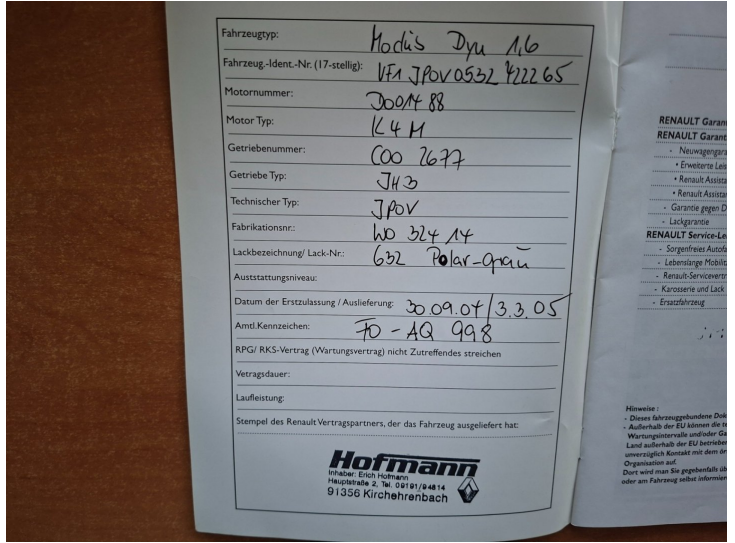 Fahrzeugtyp: Modus Dyn 1,6
Fahrzeug.-Ident.-Nr. (17-stellig): VF1 JP0V0532 422265
Motornummer: D001488
Motor Typ: K4M
Getriebenummer: C00 2677
Getriebe Typ: JH3
Technischer Typ: JP0V
Fabrikationsnr.: W0 324 14
Lackbezeichnung/ Lack-Nr.: 632 Polar-grau
Auststattungsniveau:
Datum der Erstzulassung / Auslieferung: 30.09.04/3.3.05
Amtl.Kennzeichen: FO-AQ 998
RPG/ RKS-Vertrag (Wartungsvertrag) nicht Zutreffendes streichen
Vetragsdauer:
Laufleistung:
Stempel des Renault Vertragspartners, der das Fahrzeug ausgeliefert hat:
Hofmann
Inhaber: Erich Hofmann
Hauptstraße 2, Tel. 09191/94814
91356 Kirchehrenbach
RENAULT Garan
RENAULT Garant
- Neuwagengara
• Erweiterte Leis
• Renault Assista
• Renault Assistan
- Garantie gegen D
- Lackgarantie
RENAULT Service-Le
- Sorgenfreies Autofa
- Lebenslange Mobilit
- Renault-Servicevertr
- Karosserie und Lack
- Ersatzfahrzeug
Hinweise :
- Dieses fahrzeuggebundene Dok
- Außerhalb der EU können die te
Wartungsintervalle und/oder Ga
Land außerhalb der EU betrieben
unverzüglich Kontakt mit dem ör
Organisation auf.
Dort wird man Sie gegebenfalls üb
oder am Fahrzeug selbst informier